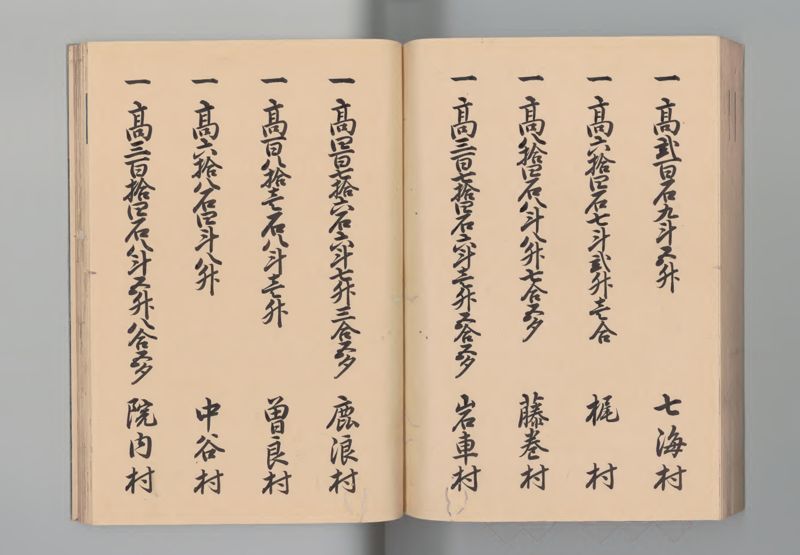 一高弐百石九斗五升 七海村
一高六拾四石七斗弐升壱合 梶村
一高八拾四石八斗八升七合五夕 藤巻村
一高三百七拾四石六斗壱升五合五夕 岩車村
一高四百七拾六石六斗七升三合五夕 鹿浪村
一高百八拾壱石八斗壱升 曽良村
一高六拾八石四斗八升 中谷村
一高三百拾四石八斗五升八合五夕 院内村